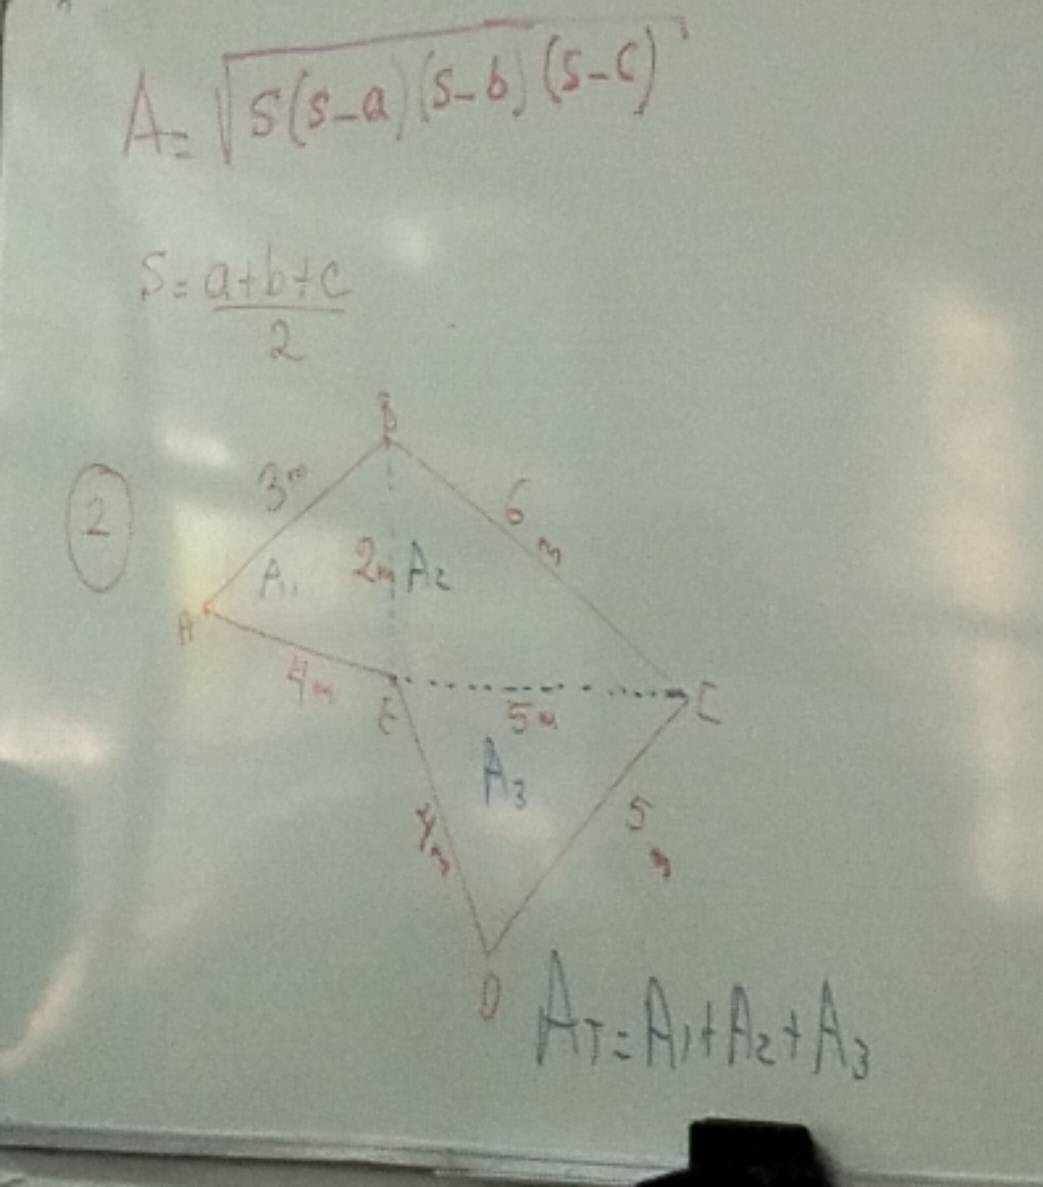 A = √S(s-a)(s-b)(s-c)
S = a+b+c
2
2
B
3m
6 m
A1
2m
A2
A
4m
E
5m
C
A3
4m
5 m
D
AT = A1 + A2 + A3